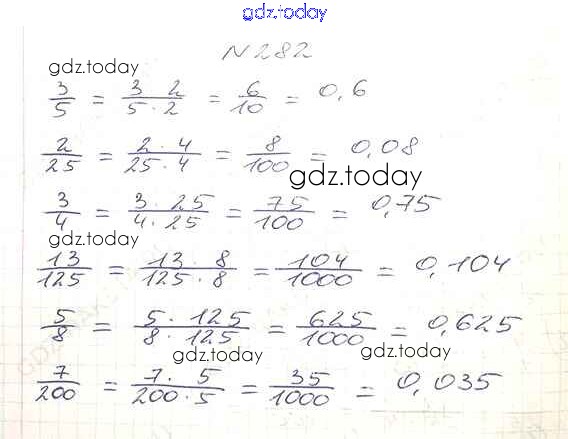 gdz.today
N 282
gdz.today
3/5 = 3 2/5 · 2 = 6/10 = 0,6
2/25 = 2 · 4/25 · 4 = 8/100 = 0,08
gdz.today
3/4 = 3 · 25/4 · 25 = 75/100 = 0,75
gdz.today
13/125 = 13 · 8/125 · 8 = 104/1000 = 0,104
5/8 = 5 · 125/8 · 125 = 625/1000 = 0,625
gdz.today
gdz.today
7/200 = 7 · 5/200 · 5 = 35/1000 = 0,035